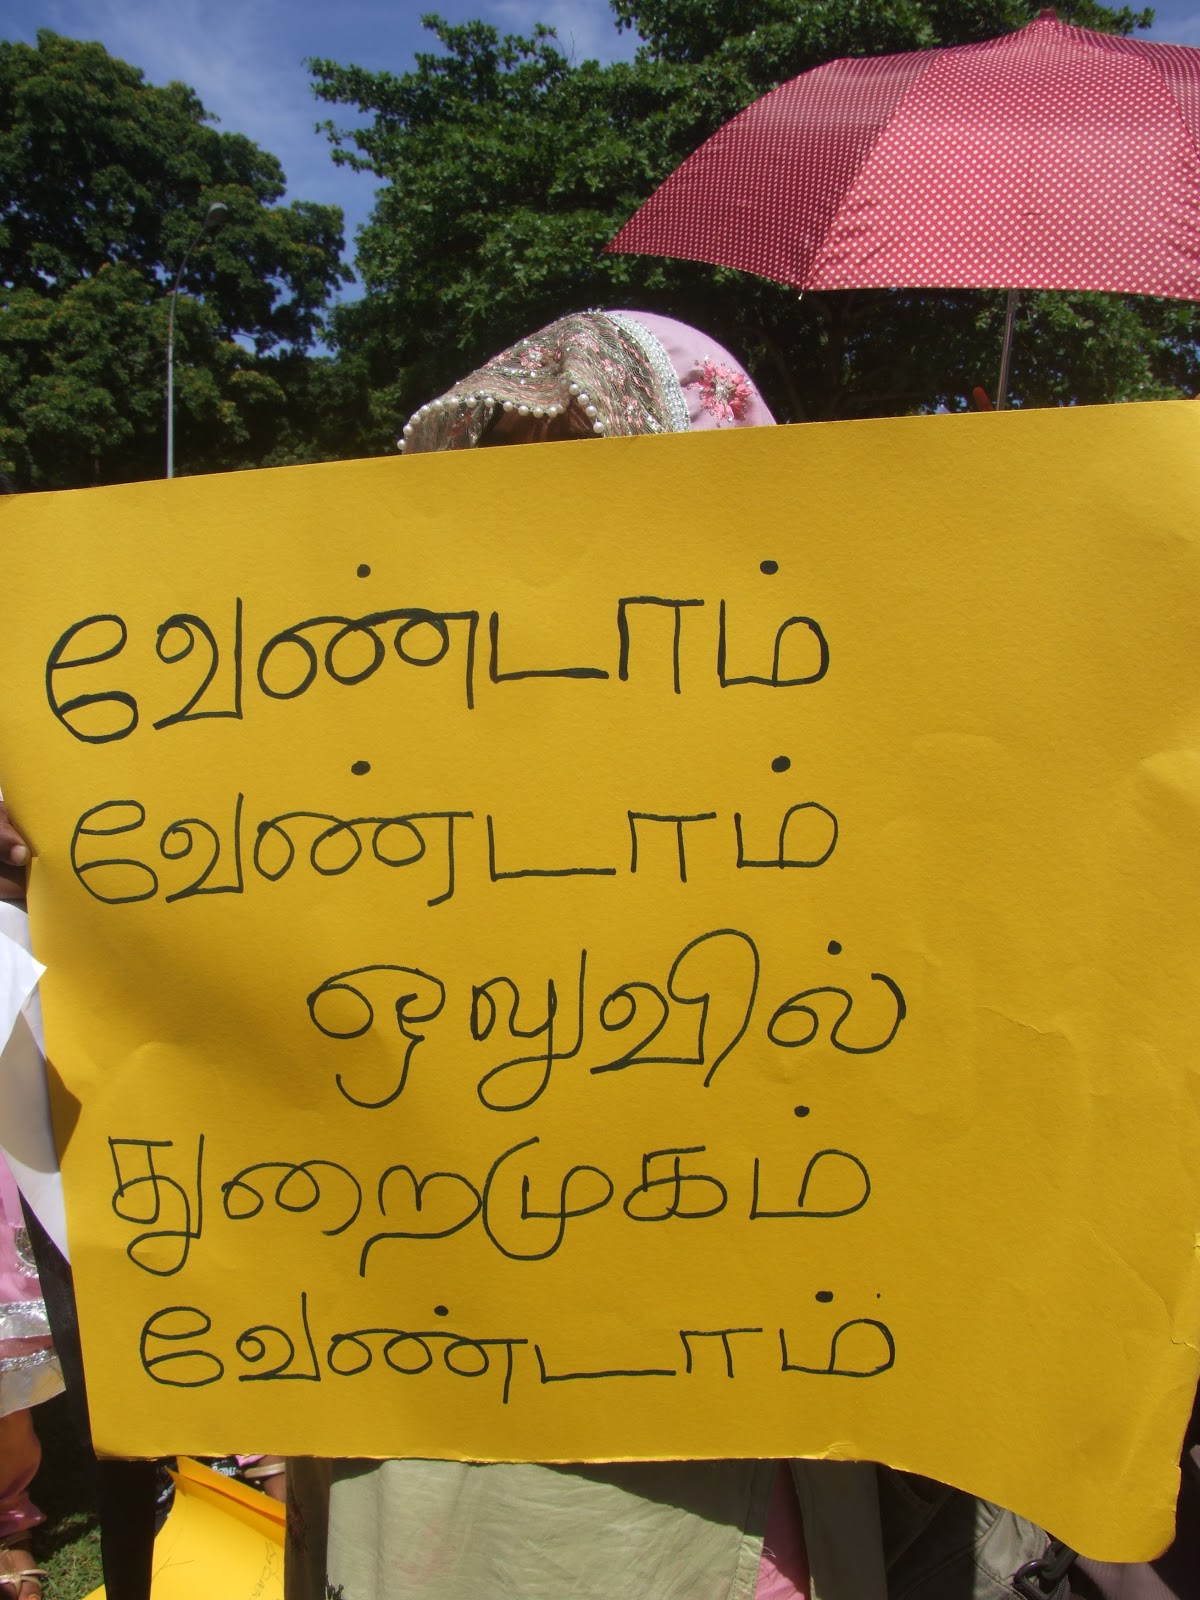 வேண்டாம்
வேண்டாம்
ஒலுவில்
துறைமுகம்
வேண்டாம்